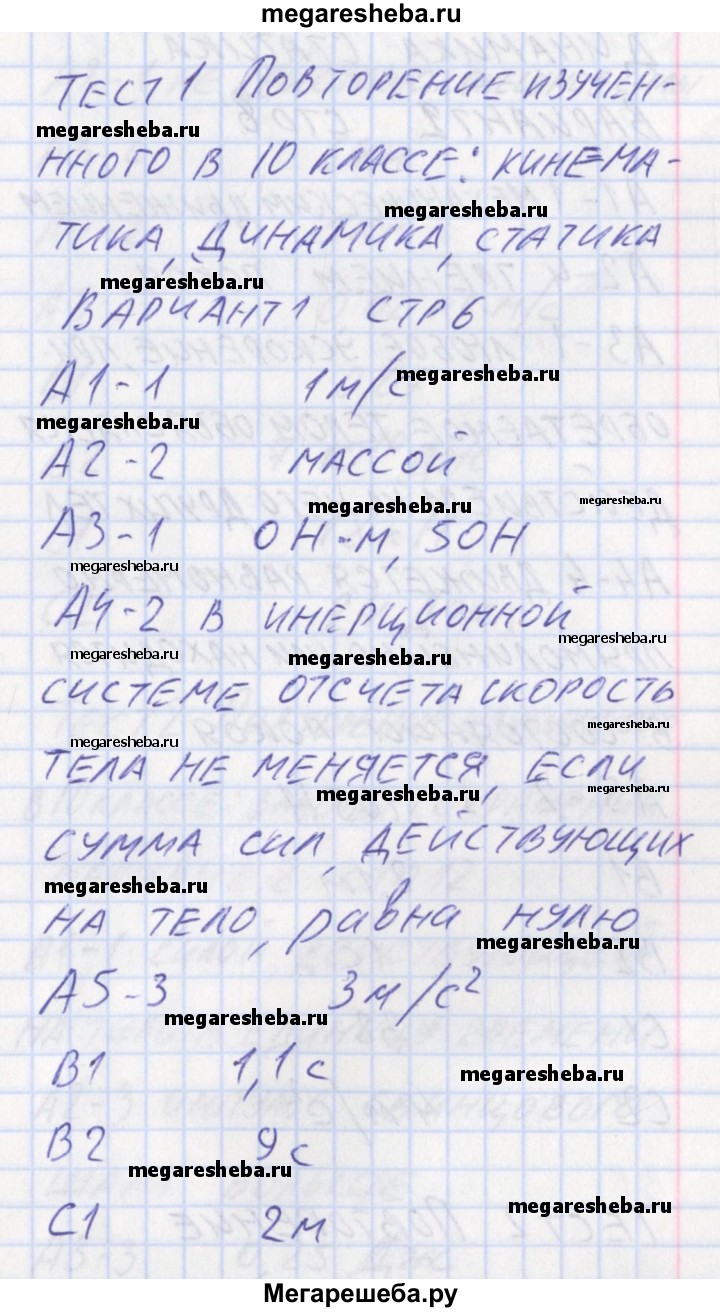 megaresheba.ru
ТЕСТ 1 ПОВТОРЕНИЕ ИЗУЧЕН-
megaresheba.ru
ННОГО В 10 КЛАССЕ: КИНЕМА-
megaresheba.ru
ТИКА, ДИНАМИКА, СТАТИКА
megaresheba.ru
ВАРИАНТ 1 СТР 6
А1-1 1 м/с megaresheba.ru
megaresheba.ru
А2-2 МАССОЙ
megaresheba.ru megaresheba.ru
А3-1 0Н·м, 50Н
megaresheba.ru
А4-2 В ИНЕРЦИОННОЙ
megaresheba.ru
megaresheba.ru megaresheba.ru
СИСТЕМЕ ОТСЧЕТА СКОРОСТЬ
megaresheba.ru
megaresheba.ru
ТЕЛА НЕ МЕНЯЕТСЯ, ЕСЛИ
megaresheba.ru megaresheba.ru
СУММА СИЛ, ДЕЙСТВУЮЩИХ
megaresheba.ru
НА ТЕЛО, равна НУЛЮ
megaresheba.ru
А5-3 3м/с²
megaresheba.ru
В1 1,1с megaresheba.ru
В2 9с
megaresheba.ru
megaresheba.ru
С1 2м
Мегарешеба.ру